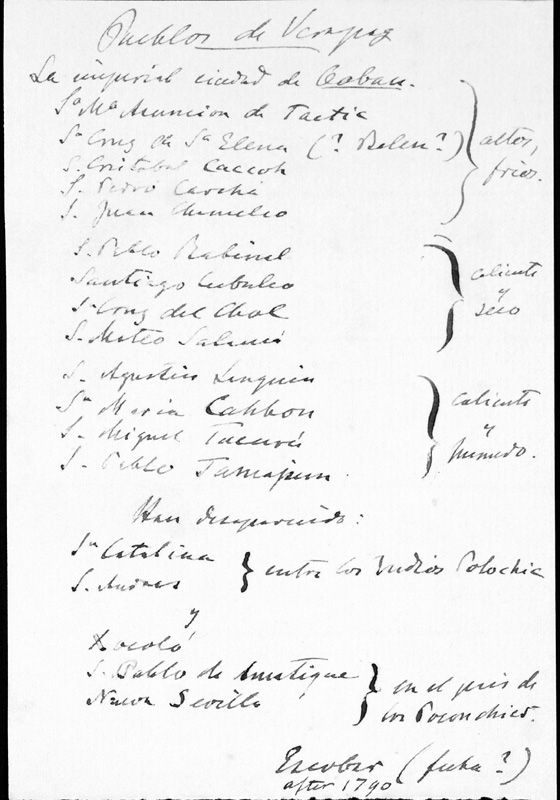 Pueblos de Verapaz
La imperial ciudad de Coban.
Sª Mª Asuncion de Tactic
Sª Cruz de Sª Elena (? Belen?)
S. Cristobal Caccoh
S. Pedro Carcha
S. Juan Chamelco
altos, frios.
S. Pablo Rabinal
Santiago Cubulco
Sª Cruz del Chol
S. Mateo Salamá
caliente
y
seco
S. Agustin Lanquin
Sª Maria Cahbon
S. Miguel Tucurú
S. Pablo Tamajun
caliente
y
humedo.
Han desaparecido:
Sª Catalina
S. Andres
entre los Indios Polochic
y
Xocoló
S. Pablo de Amatique
Nueva Sevilla
en el pais de
los Poconchies.
Escobar (fecha?)
after 1790